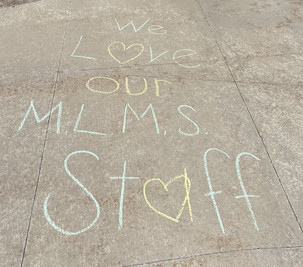 We
Love
Our
M.L.M.S.
Staff